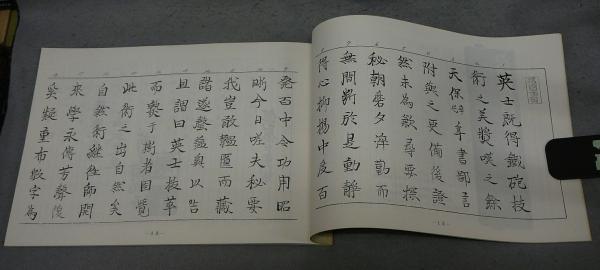 英士既得鐵砲技
術之美獎嘆之餘
天保 年書鄙言
附與之更備後證
然未為歉尋要探
秘朝磨夕淬勤而
無間斷於是動靜
得心抑揚中度百
發百中令功用昭
晰今日嗟夫秘要
我豈敢韞匵而藏
諸遂罄蘊奥以告
且謂曰英士技萃
而藝于衛者固覺
此術之出自然矣
自然術繼經師関
來學永傳芳聲後
矣疑重布數字為